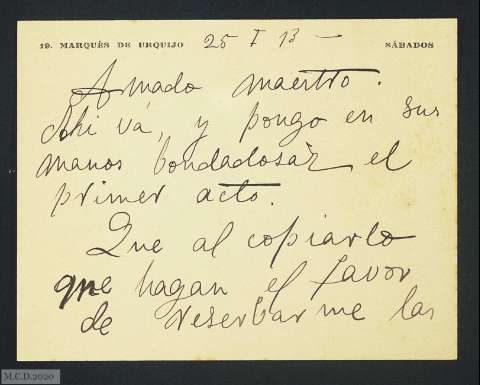 19. MARQUÈS DE URQUIJO 25 I 13 — SÁBADOS
Amado maestro.
Ahi vá, y pongo en sus
manos bondadosas el
primer acto.
Que al copiarlo
que hagan el favor
de reservarme las
M.C.D.2020